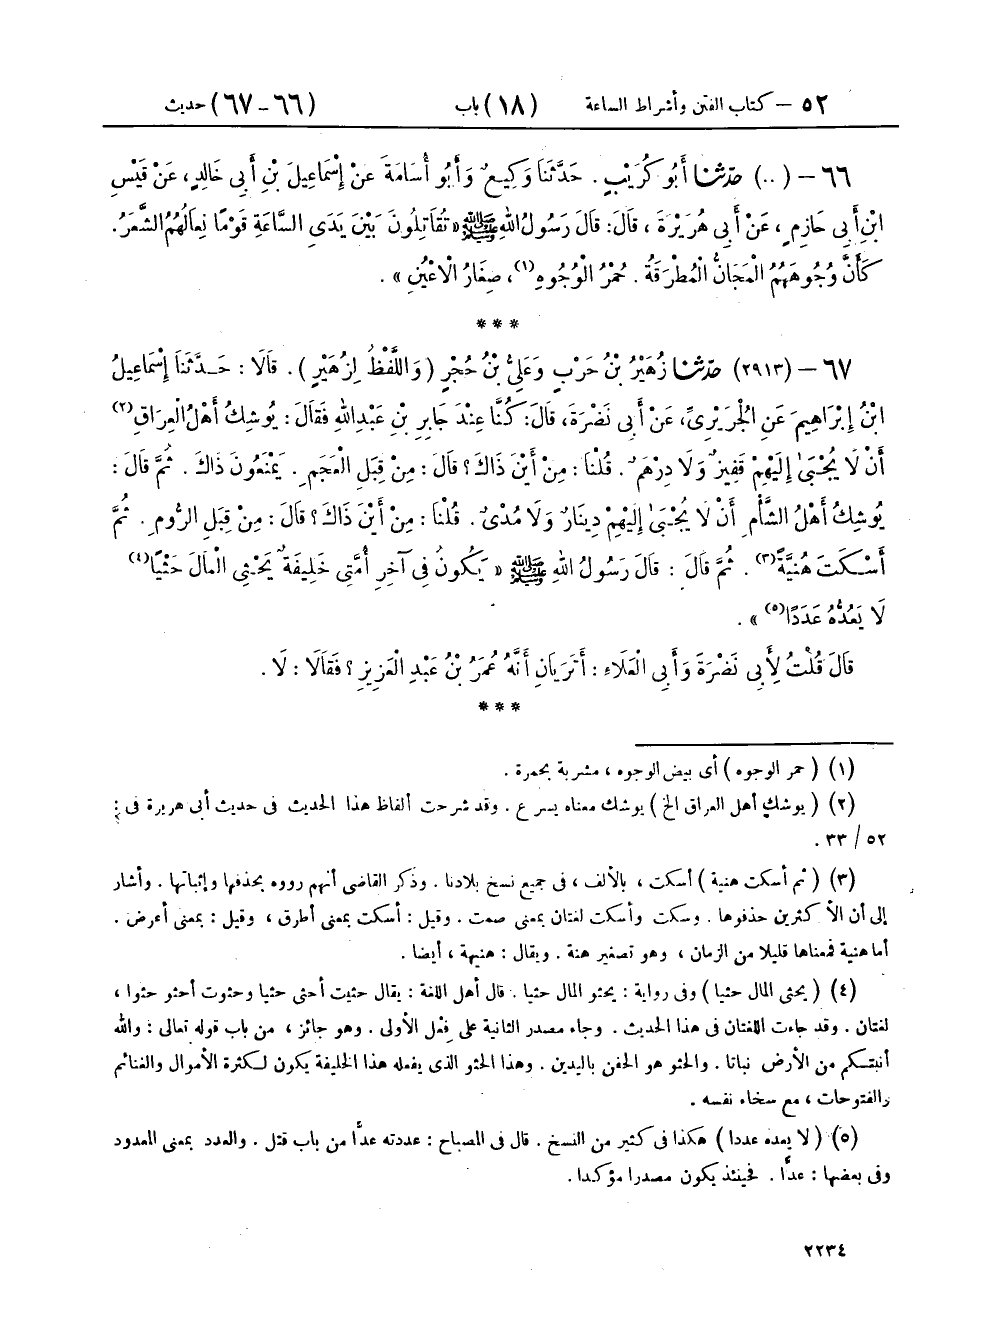 ٥٢ – كتاب الفتن وأشراط الساعة (١٨) باب (٦٦ – ٦٧) حديث
٦٦ – (..) حدّثنا أَبُو كُرَيْبٍ . حَدَّثَنَا وَكِيعٌ وَأَبُو أُسَامَةَ عَنْ إِسْمَاعِيلَ بْنِ أَبِي خَالِدٍ ، عَنْ قَيْسِ
ابْنِ أَبِي حَازِمٍ ، عَنْ أَبِي هُرَيْرَةَ ، قَالَ: قَالَ رَسُولُ اللهِ ﷺ « تُقَاتِلُونَ بَيْنَ يَدَىِ السَّاعَةِ قَوْمًا نِعَالُهُمُ الشَّعَرُ .
كَأَنَّ وُجُوهَهُمُ الْمَجَانُّ الْمُطْرَقَةُ . حُمْرُ الْوُجُوهِ(١)، صِغَارُ الْأَعْيُنِ » .
***
٦٧ – (٢٩١٣) حدّثنا زُهَيْرُ بْنُ حَرْبٍ وَعَلِىُّ بْنُ حُجْرٍ ( وَاللَّفْظُ لِزُهَيْرٍ ) . قَالَا : حَدَّثَنَا إِسْمَاعِيلُ
ابْنُ إِبْرَاهِيمَ عَنِ الْجُرَيْرِىِّ، عَنْ أَبِي نَضْرَةَ، قَالَ: كُنَّا عِنْدَ جَابِرِ بْنِ عَبْدِ اللهِ فَقَالَ : يُوشِكُ أَهْلُ الْعِرَاقِ(٢)
أَنْ لَا يُجْبَىٰ إِلَيْهِمْ قَفِيزٌ وَلَا دِرْهَمٌ . قُلْنَا : مِنْ أَيْنَ ذَاكَ ؟ قَالَ : مِنْ قِبَلِ الْعَجَمِ . يَمْنَعُونَ ذَاكَ . ثُمَّ قَالَ :
يُوشِكُ أَهْلُ الشَّأْمِ أَنْ لَا يُجْبَىٰ إِلَيْهِمْ دِينَارٌ وَلَا مُدْىٌ . قُلْنَا : مِنْ أَيْنَ ذَاكَ ؟ قَالَ : مِنْ قِبَلِ الرُّومِ . ثُمَّ
أَسْكَتَ هُنَيَّةً(٣) . ثُمَّ قَالَ : قَالَ رَسُولُ اللهِ ﷺ « يَكُونُ فِي آخِرِ أُمَّتِي خَلِيفَةٌ يَحْثِي الْمَالَ حَثْيًا(٤)
لَا يَعُدُّهُ عَدَدًا(٥) » .
قَالَ قُلْتُ لِأَبِي نَضْرَةَ وَأَبِي الْعَلَاءِ : أَتَرَيَانِ أَنَّهُ عُمَرُ بْنُ عَبْدِ الْعَزِيزِ ؟ فَقَالَا : لَا .
***
(١) ( حمر الوجوه ) أى بيض الوجوه ، مشربة بحمرة .
(٢) ( يوشك أهل العراق الخ ) يوشك معناه يسرع . وقد شرحت ألفاظ هذا الحديث فى حديث أبى هريرة فى :
٥٢ / ٣٣ .
(٣) ( ثم أسكت هنية ) أسكت ، بالألف ، فى جميع نسخ بلادنا . وذكر القاضى أنهم رووه بحذفها وإثباتها . وأشار
إلى أن الأكثرين حذفوها . وسكت وأسكت لغتان بمعنى صمت . وقيل : أسكت بمعنى أطرق ، وقيل : بمعنى أعرض .
أما هنية فمعناها قليلا من الزمان ، وهو تصغير هنة . ويقال : هنيهة ، أيضا .
(٤) ( يحثى المال حثيا ) وفى رواية : يحثو المال حثيا . قال أهل اللغة : يقال حثيت أحثى حثيا وحثوت أحثو حثوا ،
لغتان . وقد جاءت اللغتان فى هذا الحديث . وجاء مصدر الثانية على فعل الأولى . وهو جائز ، من باب قوله تعالى : والله
أنبتكم من الأرض نباتا . والحثو هو الحفن باليدين . وهذا الحثو الذى يفعله هذا الخليفة يكون لكثرة الأموال والغنائم
والفتوحات ، مع سخاء نفسه .
(٥) ( لا يعده عددا ) هكذا فى كثير من النسخ . قال فى المصباح : عددته عدًّا من باب قتل . والعدد بمعنى المعدود
وفى بعضها : عدًّا . فحينئذ يكون مصدرا مؤكدا .
٢٢٣٤